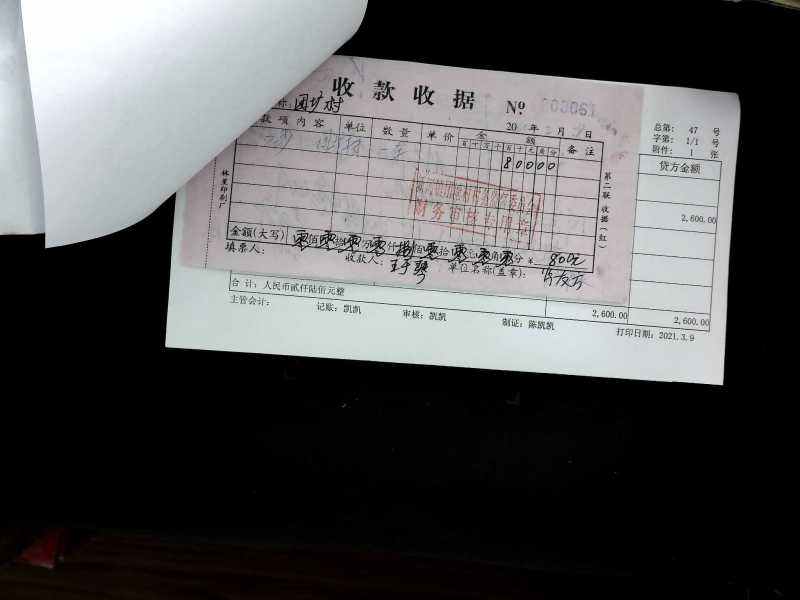 收款收据
Nº 003061
总第: 47 号
字第: 1/1 号
附件: 1 张
20 年 月 日
称: 围圹村
款项内容 单位 数量 单价 金额 备注
百 十 万 千 百 十 元 角 分
80000
贷方金额
2,600.00
第二联 收据(红)
林里印刷厂
财务审核专用章
金额(大写) 零佰零拾零万零仟捌佰零拾零元零角零分 ¥ 800元
填票人:
收款人:
单位名称(盖章):
合计: 人民币贰仟陆佰元整 2,600.00 2,600.00
主管会计: 记账: 凯凯 审核: 凯凯 制证: 陈凯凯 打印日期: 2021.3.9